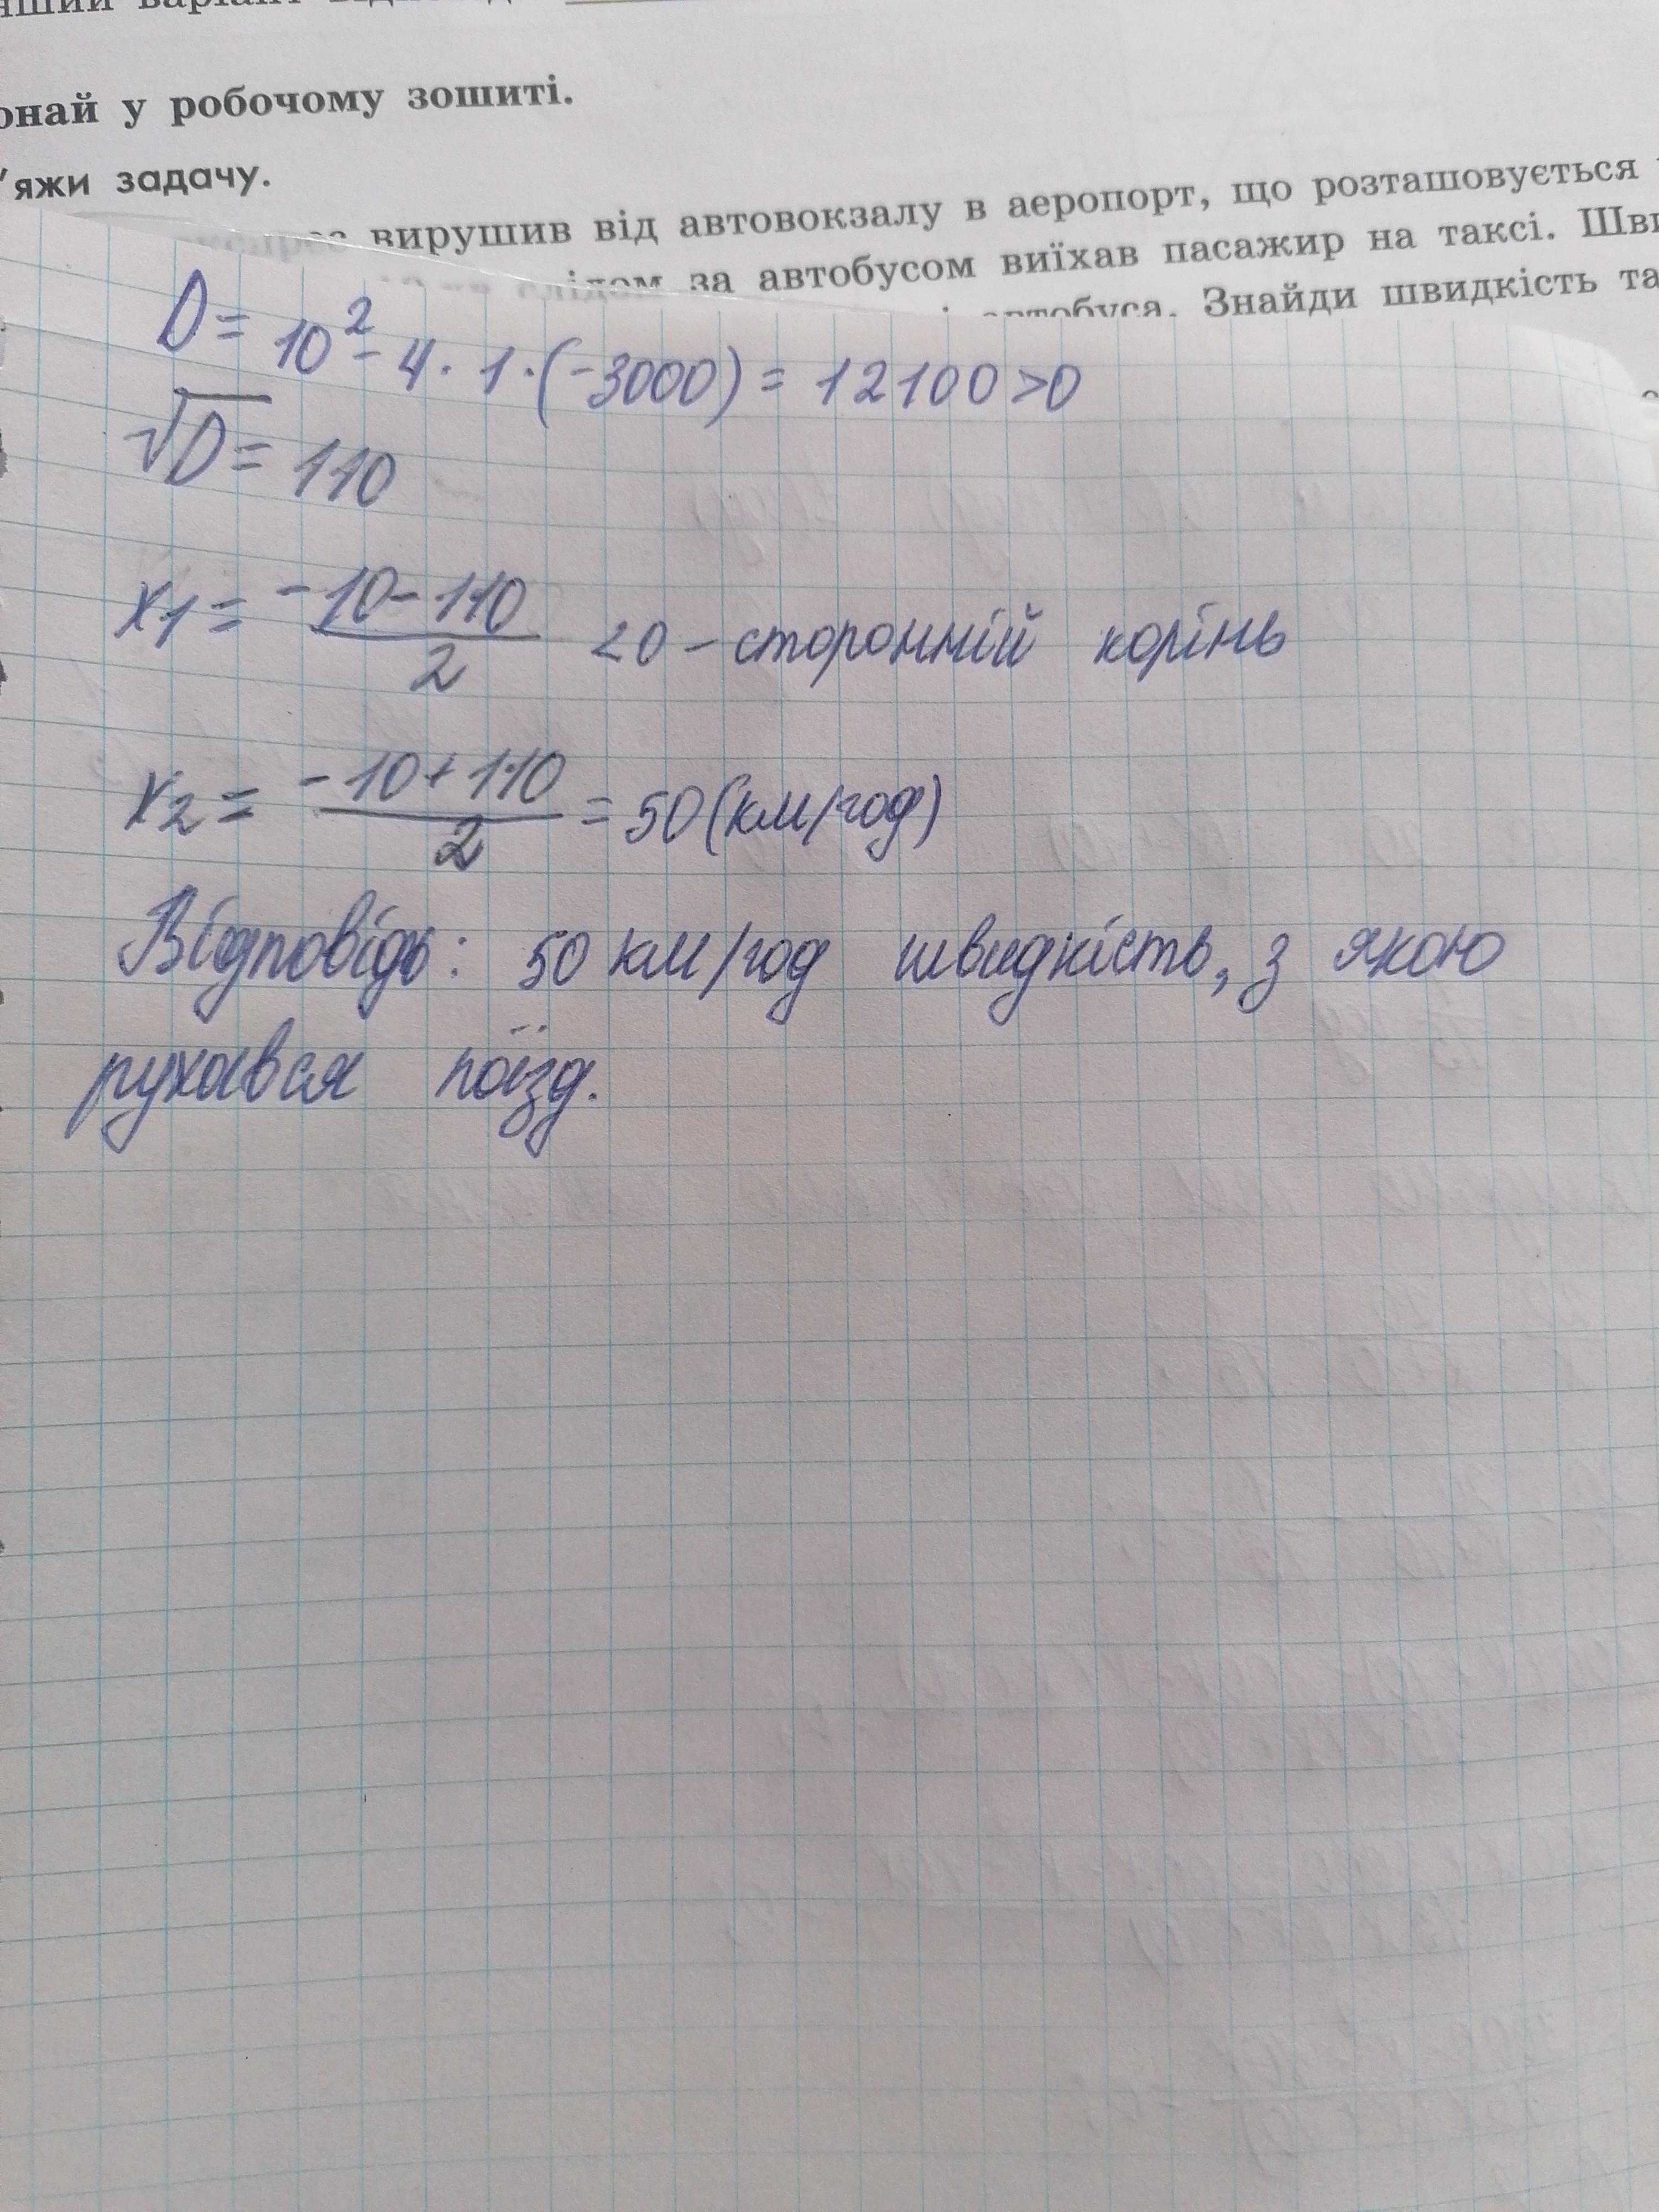 онай у робочому зошиті.
'яжи задачу.
вирушив від автовокзалу в аеропорт, що розташовується
за автобусом виїхав пасажир на таксі. Шви
автобуса. Знайди швидкість та
D = 10² - 4 · 1 · (-3000) = 12100 > 0
√D = 110
x1 = (-10-110)/2 <0 - сторонній корінь
x2 = (-10+110)/2 = 50 (км/год)
Відповідь: 50 км/год швидкість, з якою
рухався поїзд.